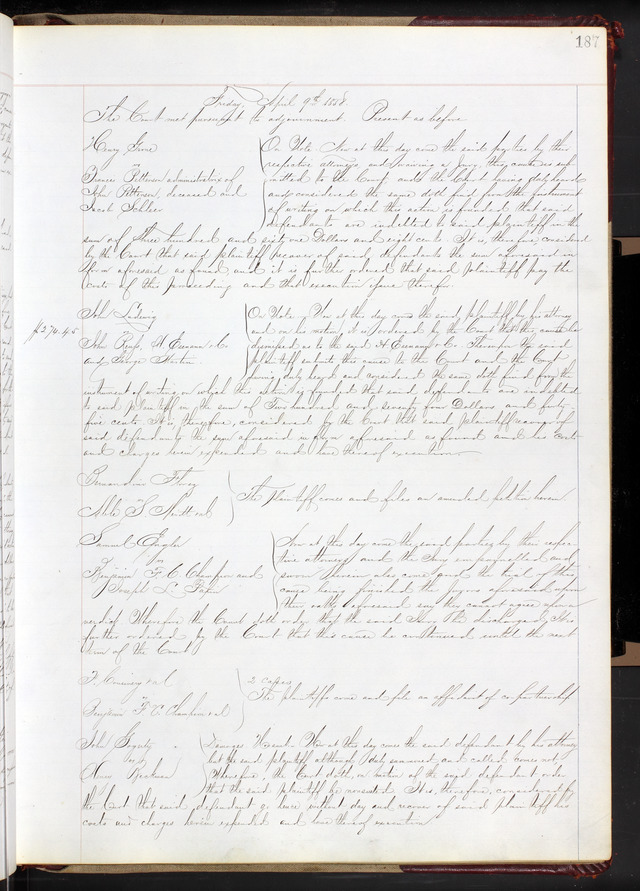 187
Friday, April 9th 1858.
The Court met pursuant to adjournment. Present as before
Henry
vs
Frances Petterson administratrix of
John Petterson, deceased and
Jacob Schleer
On Note. Now at this day come the said parties by their
respective attorneys and waiving a Jury, they cause is sub
mitted to the Court and the Court having duly heard
and considered the same doth find from the instrument
of writing on which this action is founded that said
defendants are indebted to said plaintiff in the
sum of Three hundred and sixty one Dollars and eight cents. It is, therefore, considered
by the Court that said plaintiff recover of said defendants the sum aforesaid in
form aforesaid as found and it is further ordered that said plaintiff pay the
costs of this proceeding and that execution issue therefor
$274.45
John Ludwig
vs
John H.
and George
On Note. Now at this day come the said plaintiff by his attorney
and on his motion it is ordered by the Court that this cause be
dismissed as to the said H. & Co. Therefore the said
plaintiff submits this cause to the Court and the Court
having duly heard and considered the same doth find from the
instrument of writing on which this action is founded that said defendants are indebted
to said plaintiff in the sum of Two hundred and seventy four Dollars and forty
five cents. It is, therefore, considered by the Court that said plaintiff recover of
said defendants the sum aforesaid in form aforesaid as found and his costs
and charges herein expended and have thereof execution
vs
The Plaintiff comes and files an amended petition herein
Samuel
vs
Benjamin F. C. Champion and
Joseph L. Papin
Now at this day come the said parties by their respec
tive attorneys and the Jury empannelled and
sworn herein also come and the trial of this
cause being finished the jurors aforesaid upon
their oaths aforesaid say they cannot agree upon a
verdict Wherefore the Court doth order that the said Jury be discharged. It is
further ordered by the Court that this cause be continued until the next
term of the Court
et al
vs
Benjamin F. C. Champion et al
2 Cases
The plaintiffs come and file an affidavit of co-partnership
John
vs
Henry
Damages. Now at this day comes the said defendant by his attorney
but the said plaintiff although duly summoned and called comes not
Wherefore, the Court doth, on motion of the said defendant order
that the said plaintiff be nonsuited. It is, therefore, considered by
the Court that said defendant go hence without day and recover of said plaintiff his
costs and charges herein expended and have thereof execution